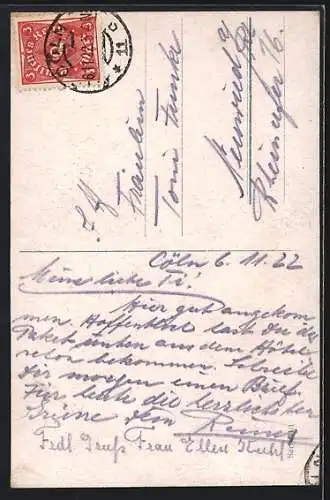 Fräulein
Toni Funke
Neuwied a/Rh
Rheinufer 76.
Cöln 6. 11. 22
Meine liebe Ti!
Hier gut angekom
men. Hoffentlich hast Du das
Paket unten aus dem Hôtel
schon bekommen. Schreibe
Dir morgen einen Brief.
Für heute die herzlichsten
Grüsse Dein
Frdl. Gruß Frau Ellen